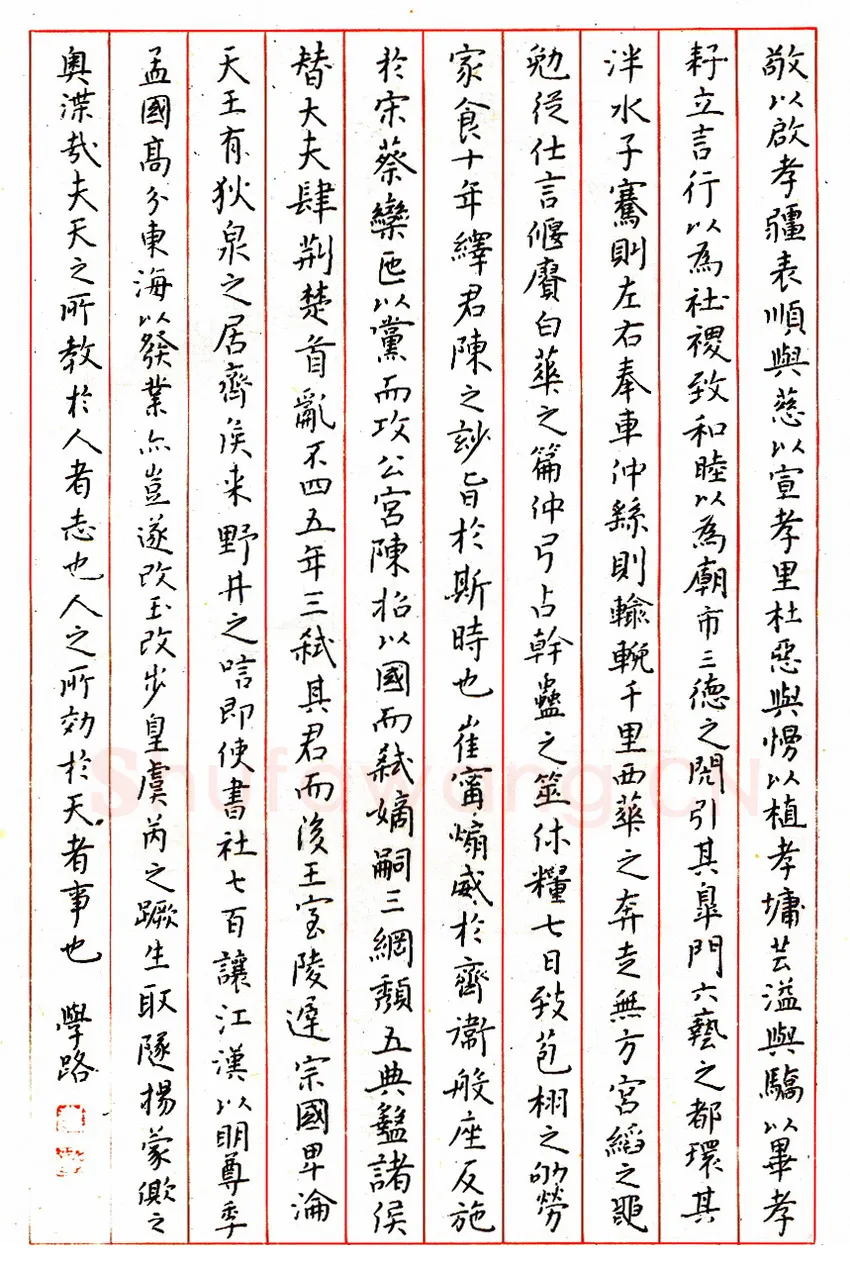 敬以啟孝疆表順與慈以宣孝里杜惡與慢以植孝墉芸溢與驕以畢孝
耔立言行以為社稷致和睦以為廟市三德之閌引其皋門六藝之都環其
泮水子騫則左右奉車仲繇則輸輓千里西華之奔走無方宮縚之黽
勉從仕言偃賡白華之篇仲弓占幹蠱之筮休糧七日致苞栩之劬勞
家食十年繹君陳之玅旨於斯時也崔甯煽威於齊衞般座反施
於宋蔡欒迊以黨而攻公宮陳招以國而弒嫡嗣三綱頹五典盭諸侯
替大夫肆荊楚首亂不四五年三弒其君而後王室陵遲宗國卑淪
天王有狄泉之居齊侯来野井之唁即使書社七百讓江漢以明尊季
孟國高分東海以發業亦豈遂改玉改步皇虞芮之蹶生取隧楊蒙俶之
奧渫哉夫天之所教於人者志也人之所効於天者事也 學路
Shufawang.CN